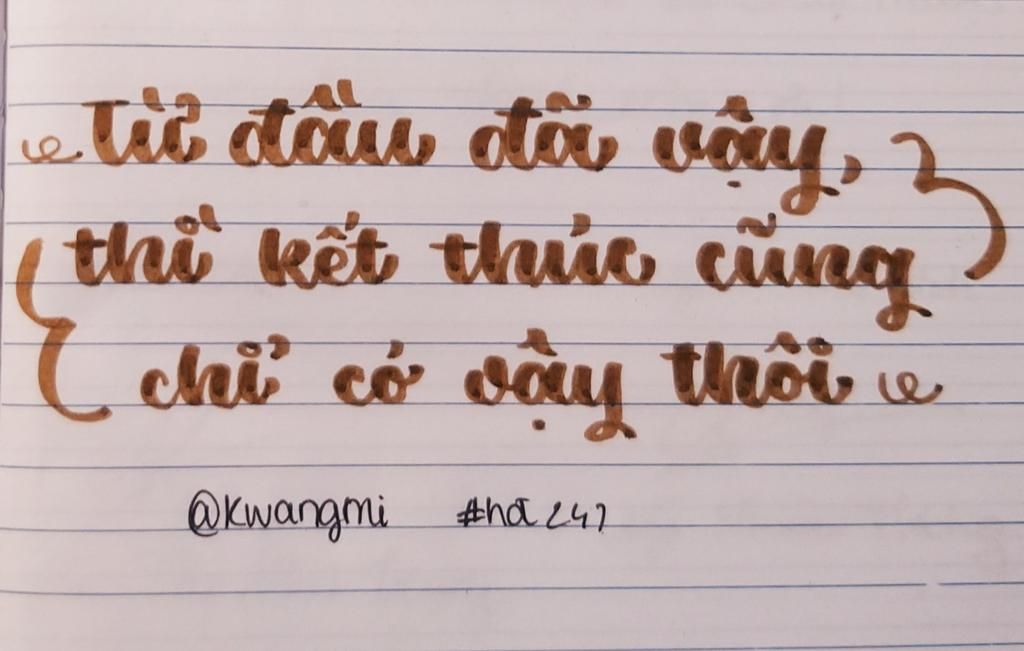 Từ đầu đã vậy,
thì kết thúc cũng
chỉ có vậy thôi
@kwangmi #ha247